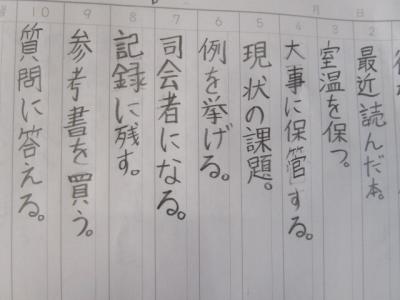 月 日
2 最近読んだ本。
3 室温を保つ。
4 大事に保管する。
5 現状の課題。
6 例を挙げる。
7 司会者になる。
8 記録に残す。
9 参考書を買う。
10 質問に答える。